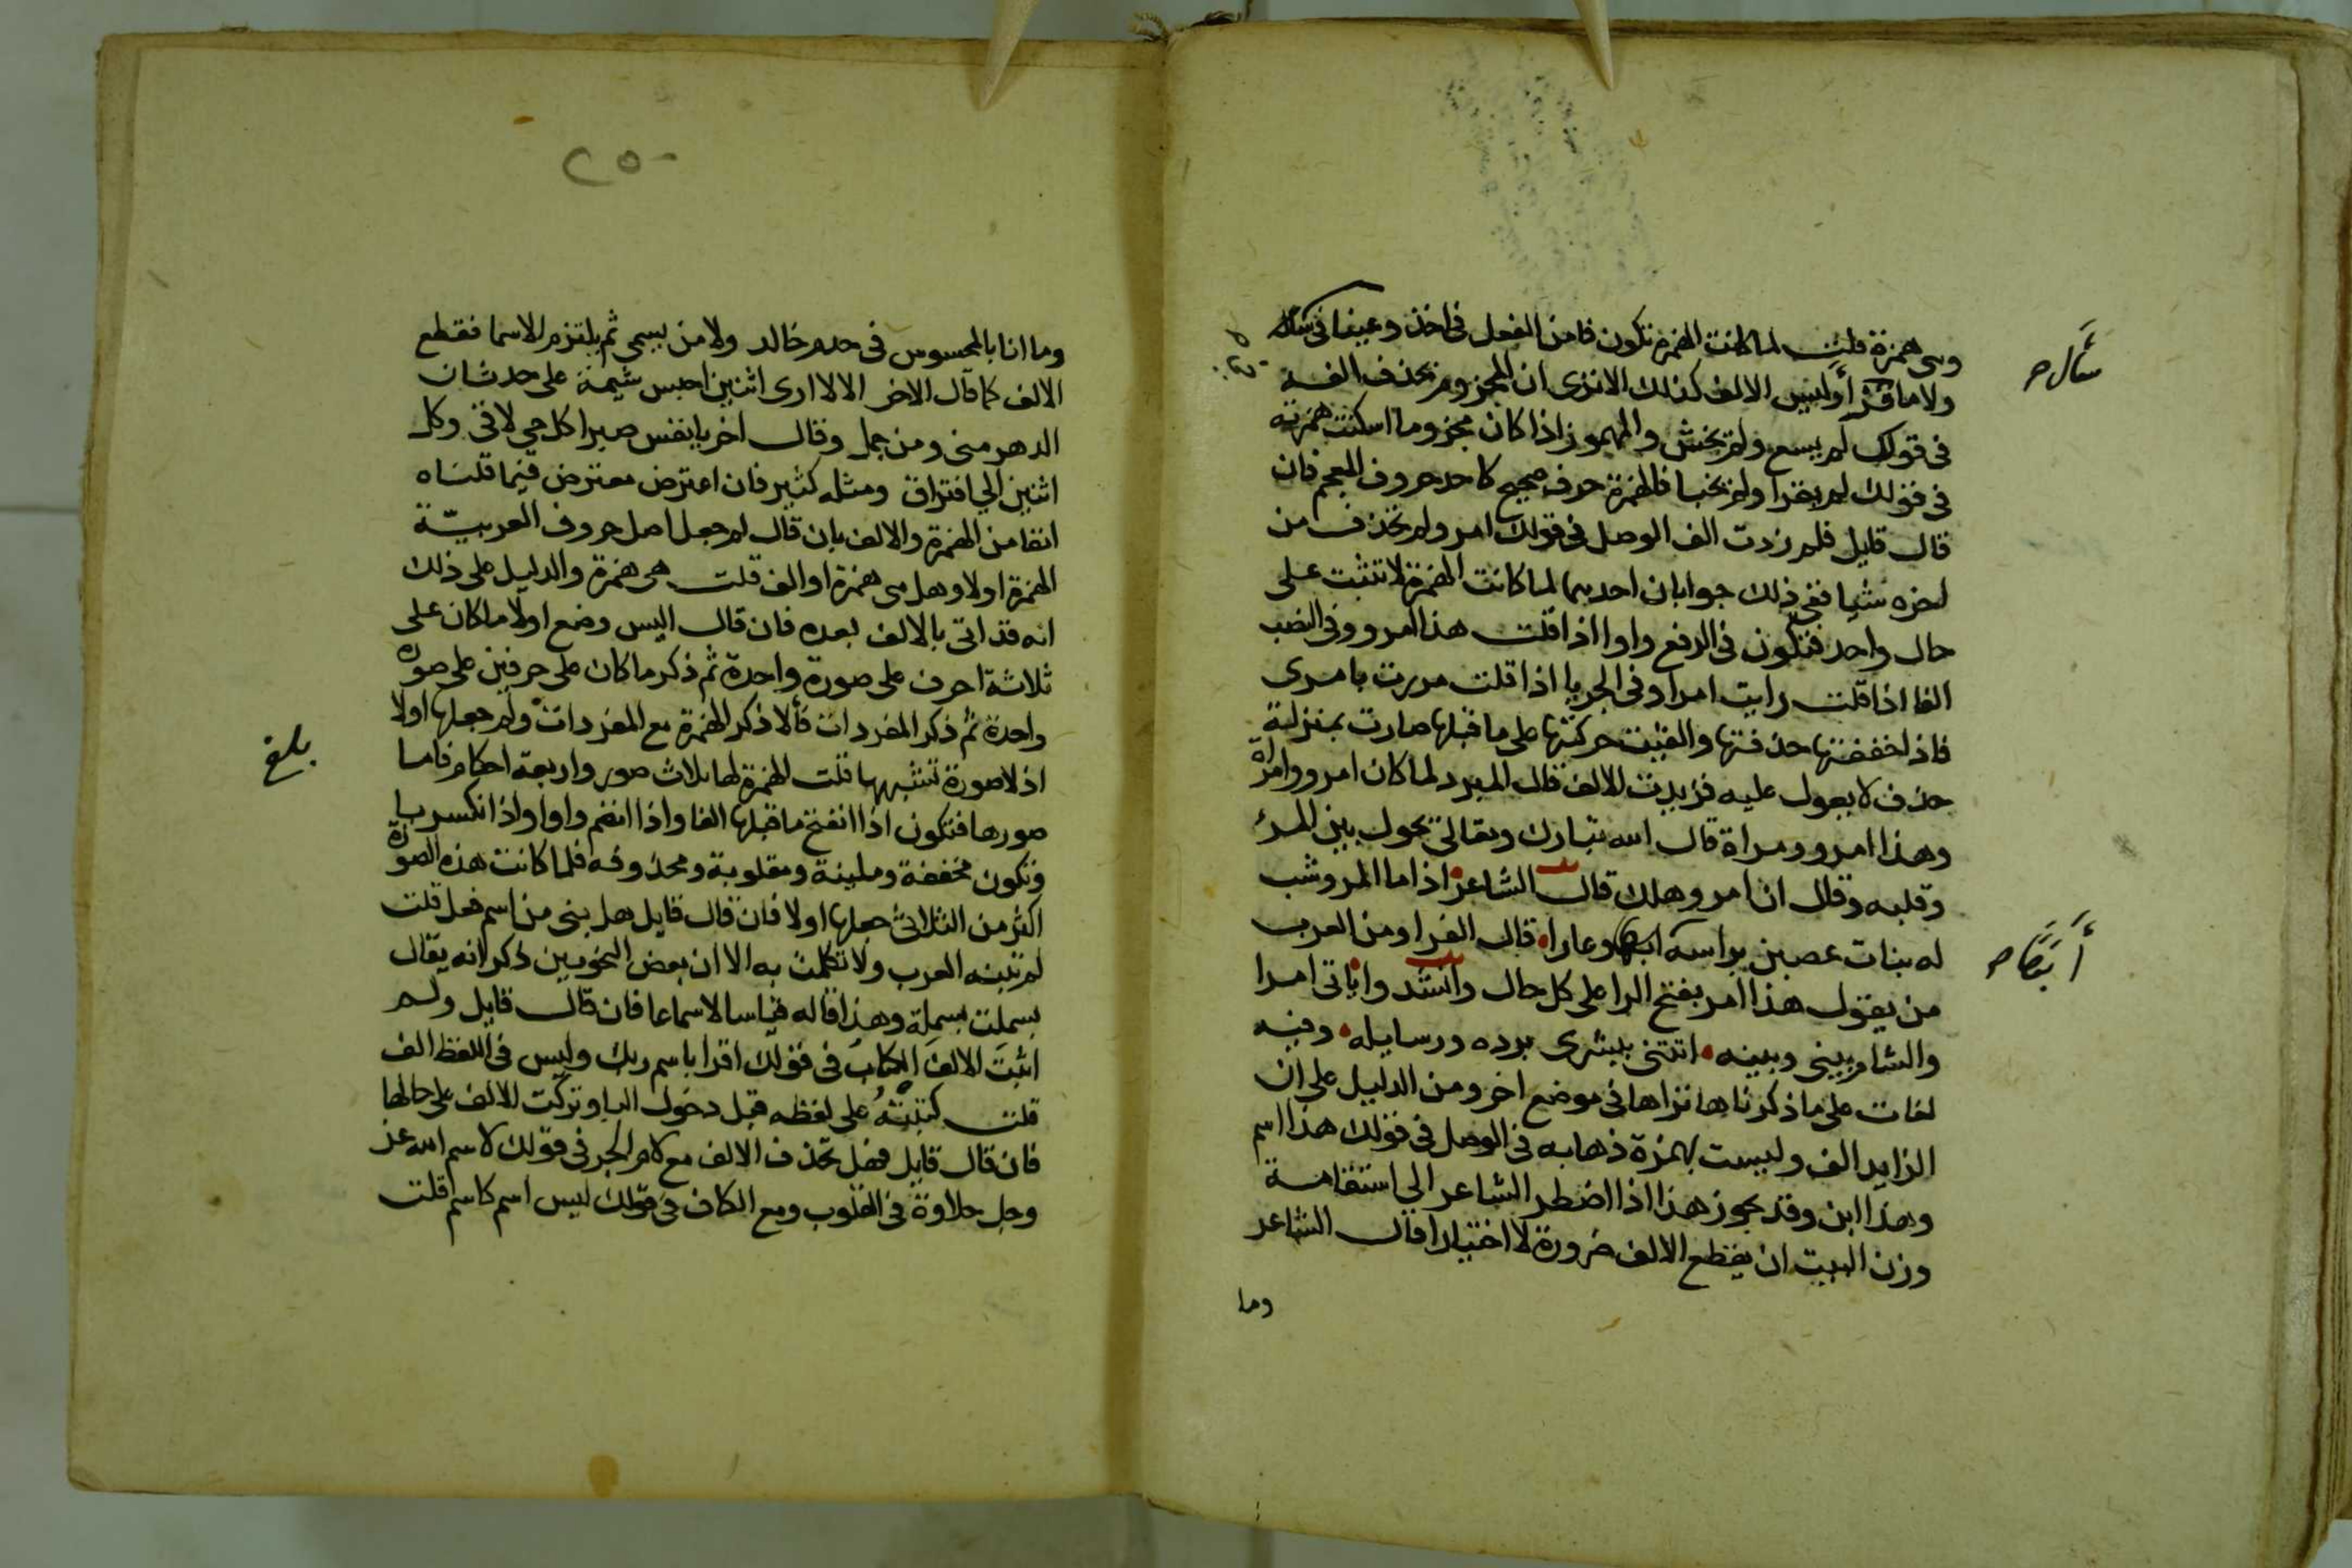 وهي همزة قلت لما كانت الهمزة تكون فا من الفعل في اخذ وعينا في سال
سَأل صح
ولاما في قرأ وليس الالف كذلك الا ترى ان المجزوم تحذف الفه
في قولك لم يسع ولم يخش والمهموز اذا كان مجزوما اسكنت همزته
في قولك لم يقرا ولم يخبا فالهمزة حرف صحيح كاحد حروف المعجم فان
قال قايل فلم زدت الف الوصل في قولك امرو ولم تحذف من
اخره شيا ففي ذلك جوابان احدهما لما كانت الهمزة لا تثبت على
حال واحد فتكون في الرفع واوا اذا قلت هذا امرو وفي النصب
الفا اذا قلت رايت امرا وفي الجر يا اذا قلت مررت بامرى
فاذا خففتها حذفتها والقيت حركتها على ما قبلها صارت بمنزلة
حرف لا يعول عليه فزيدت الالف قال المبرد لما كان امرو وامراة
وهذا امرو ومراة قال الله تبارك وتعالى يحول بين المرء
وقلبه وقال ان امرو هلك قال الشاعر اذا ما المرو شب
له بنات عصبن براسه وعارا قال الفرا ومن العرب
أَبَتًا صح
من يقول هذا امر بفتح الرا على كل حال وانشد واياتى امرا
والشام بيني وبينه اتتني ببشرى برده ورسايله وفيه
لغات على ما ذكرنا ها نراها في موضع اخر ومن الدليل على ان
الزايد الف وليست بهمزة ذهابه في الوصل في قولك هذا اسم
وهذا ابن وقد يجوز هذا اذا اضطر الشاعر الى استقامة
وزن البيت ان يقطع الالف ضرورة لا اختيارا قال الشاعر
وما
٢٥٠
وما انا بالمحسوس في جدم خالد ولا من يسمى ثم يلتزم الاسما فقطع
الالف كما قال الاخر الا لا ارى اثنين احسن شيمة على حدثان
الدهر مني ومن جمل وقال اخر يا نفس صبرا كل حي لاقي وكل
اثنين الى افتراق ومثله كثير فان اعترض معترض فيما قلناه
انفا من الهمزة والالف بان قال لم جعل اصل حروف العربيّة
الهمزة اولا وهل هي همزة او الف قلت هي همزة والدليل على ذلك
انه قد اتى بالالف بعده فان قال اليس وضع اولا ما كان على
ثلاثة احرف على صورة واحدة ثم ذكر ما كان على حرفين على صورة
واحدة ثم ذكر المفردات فألا ذكر الهمزة مع المفردات ولم جعلها اولا
بلغ
اذ لا صورة تشبهها قلت الهمزة لها ثلاث صور واربعة احكام فاما
صورها فتكون اذا انفتح ما قبلها الفا واذا انضم واوا واذا انكسر يا
وتكون مخففة وملينة ومقلوبة ومحذوفه فلما كانت هذه الصورة
اكثر من الثلاثي جعلها اولا فان قال قايل هل بني من اسم فعل قلت
لم تبنه العرب ولا تكلمت به الا ان بعض النحويين ذكر انه يقال
بسملت بسملة وهذا قاله قياسا لا سماعا فان قال قايل ولم
اثبت الالف الكتابُ في قولك اقرا باسم ربك وليس في اللفظ الف
قلت كتبتُهُ على لفظه قبل دخول البا وتركت الالف على حالها
فان قال قايل فهل تحذف الالف مع لام الجر في قولك لاسم الله عز
وجل حلاوة في القلوب ومع الكاف في قولك ليس اسم كاسم قلت